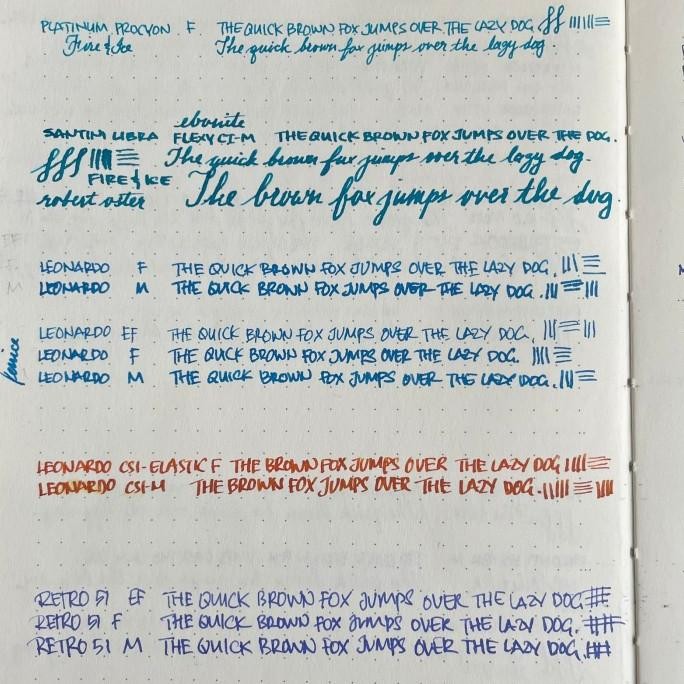 PLATINUM PROCYON F THE QUICK BROWN FOX JUMPS OVER THE LAZY DOG
Fire & Ice The quick brown fox jumps over the lazy dog.
ebonite
SANTINI LIBRA FLEXY CI-M THE QUICK BROWN FOX JUMPS OVER THE DOG.
The quick brown fox jumps over the lazy dog.
FIRE & ICE
robert oster The brown fox jumps over the dog.
LEONARDO F THE QUICK BROWN FOX JUMPS OVER THE LAZY DOG.
LEONARDO M THE QUICK BROWN FOX JUMPS OVER THE LAZY DOG.
LEONARDO EF THE QUICK BROWN FOX JUMPS OVER THE LAZY DOG.
LEONARDO F THE QUICK BROWN FOX JUMPS OVER THE LAZY DOG.
fenice
LEONARDO M THE QUICK BROWN FOX JUMPS OVER THE LAZY DOG.
LEONARDO CSI-ELASTIC F THE BROWN FOX JUMPS OVER THE LAZY DOG
LEONARDO CSI-M THE BROWN FOX JUMPS OVER THE LAZY DOG.
RETRO 51 EF THE QUICK BROWN FOX JUMPS OVER THE LAZY DOG
RETRO 51 F THE QUICK BROWN FOX JUMPS OVER THE LAZY DOG.
RETRO 51 M THE QUICK BROWN FOX JUMPS OVER THE LAZY DOG.